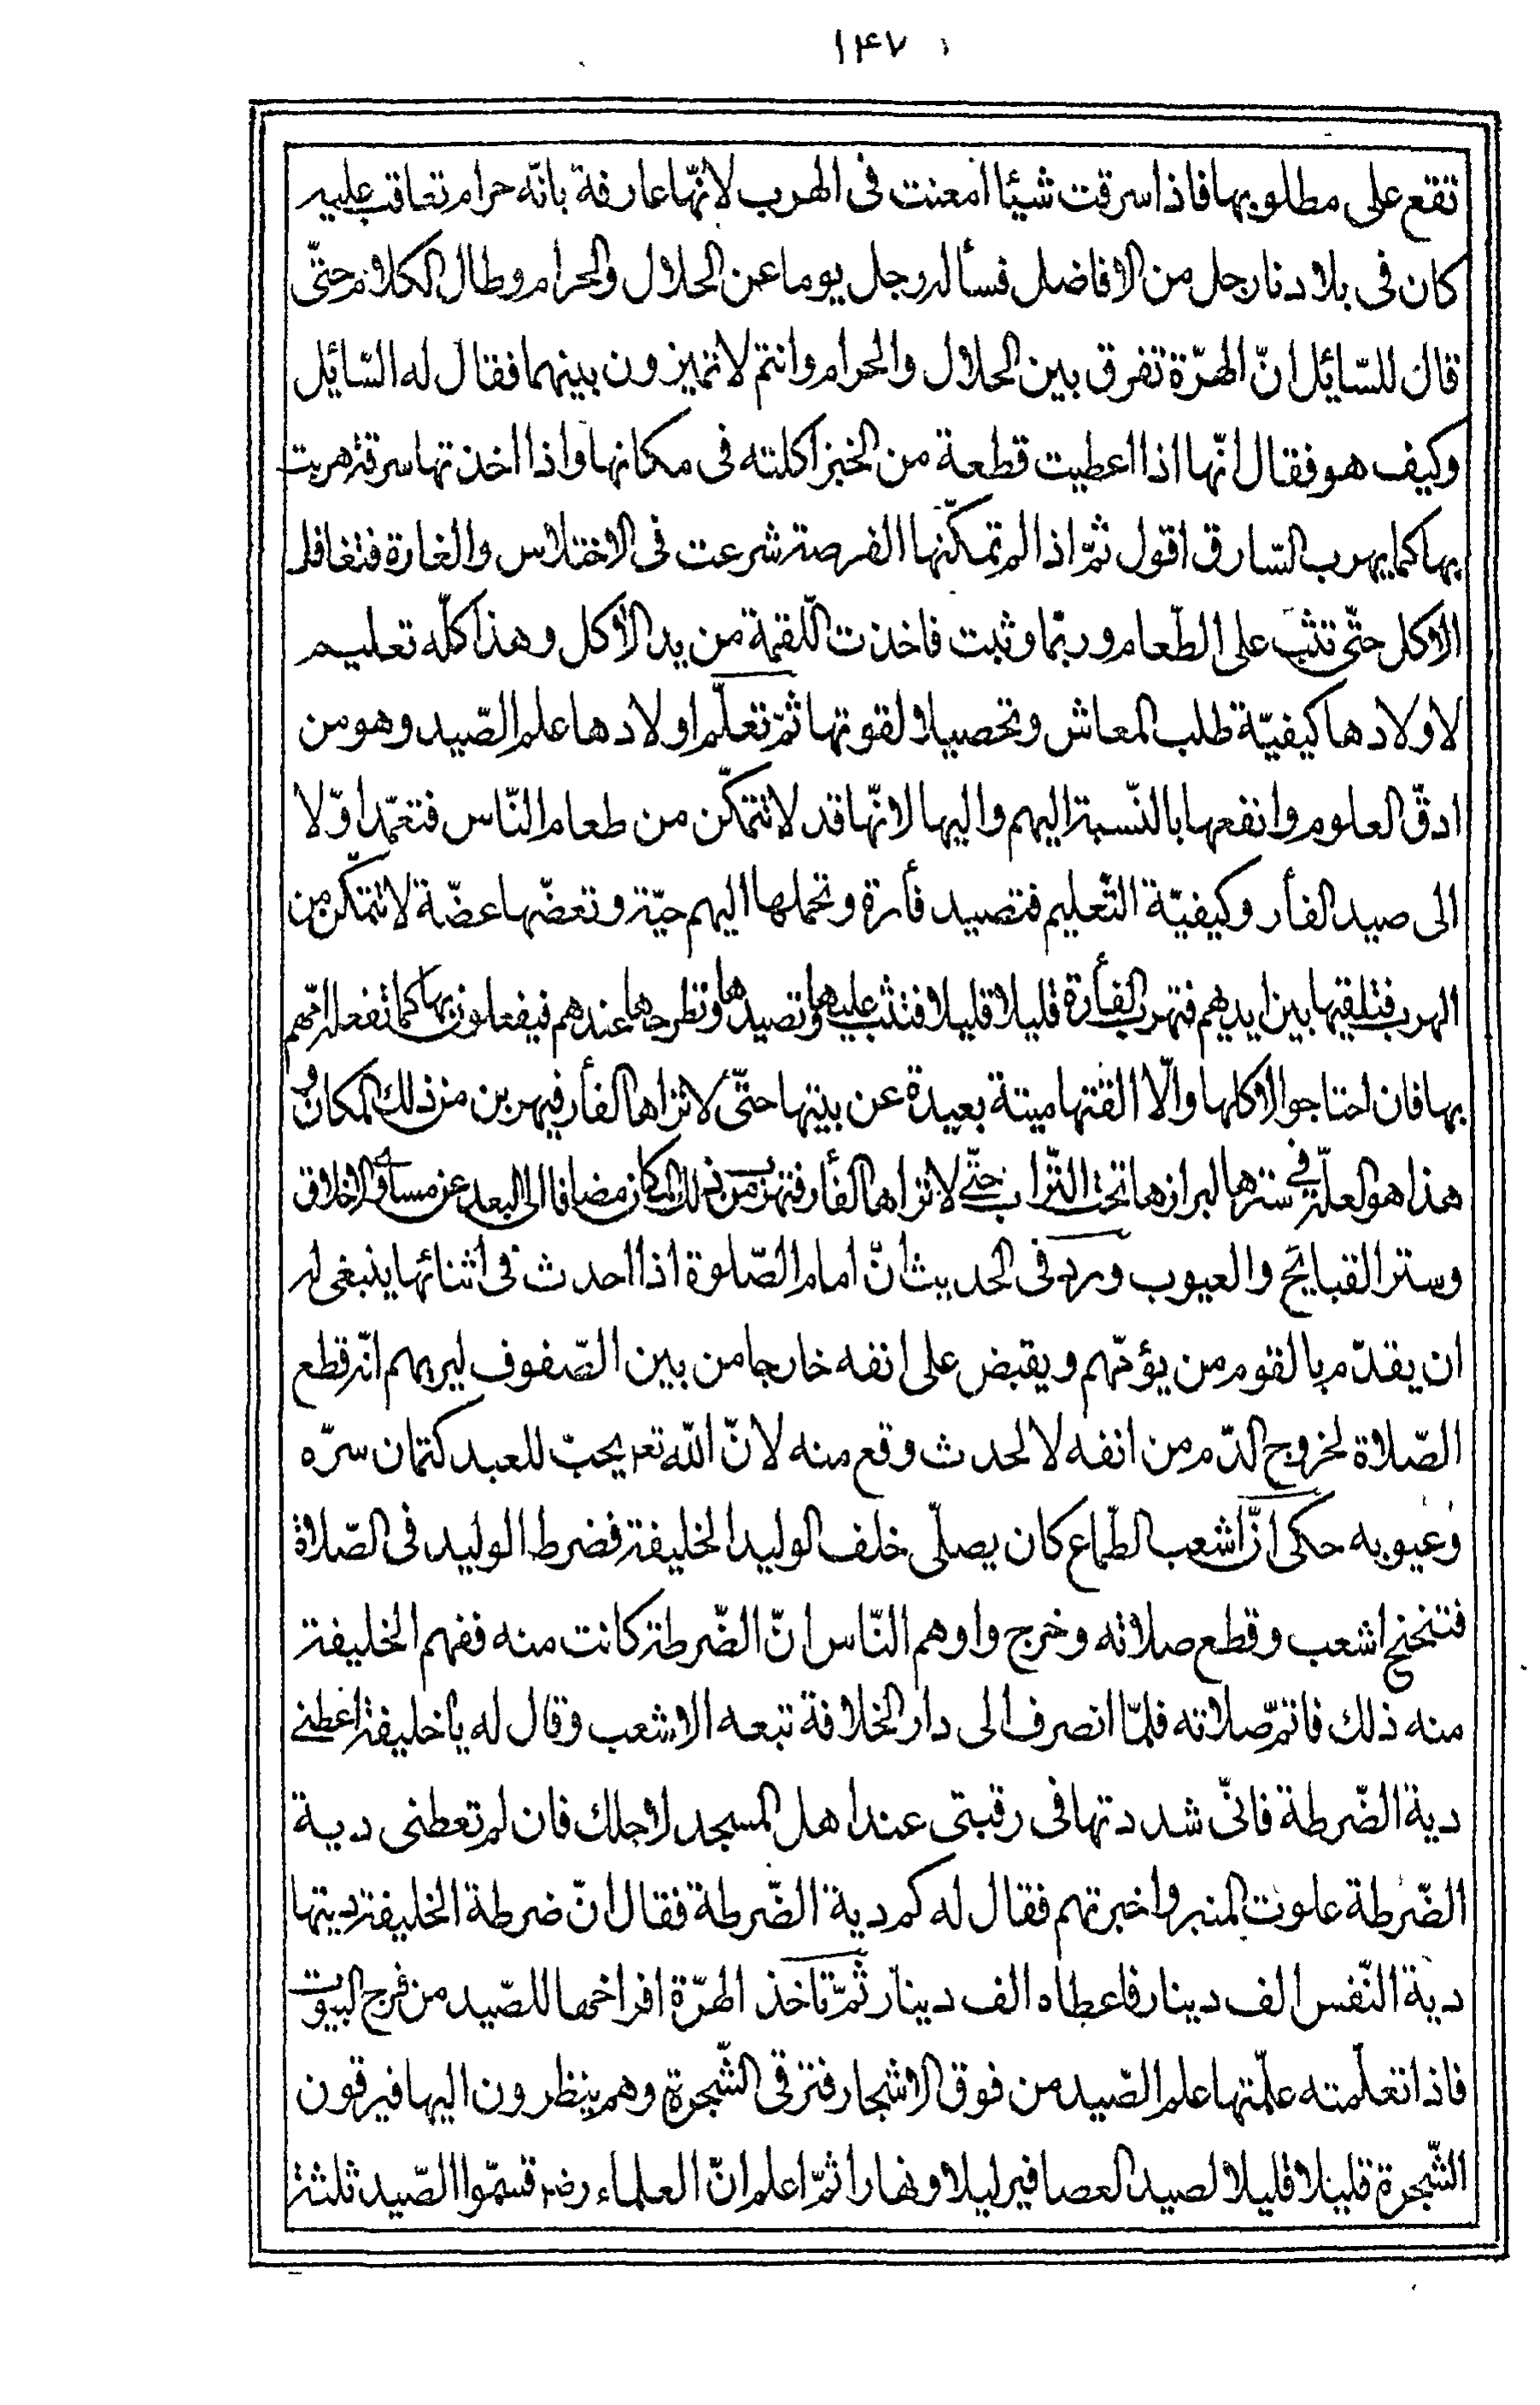 ١٤٧
تقع على مطلوبها فاذا سرقت شيئا امعنت فى الهرب لانّها عارفة بانّه حرام تعاقب عليه
كان فى بلادنا رجل من الافاضل فسأله رجل يوما عن الحلال والحرام وطال الكلام حتّى
قال للسّائل انّ الهرّة تفرق بين الحلال والحرام وانتم لا تميزون بينهما فقال له السّائل
وكيف هو فقال انّها اذا اعطيت قطعة من الخبز اكلته فى مكانها واذا اخذتها سرقة هربت
بها كما يهرب السّارق اقول ثمّ اذا لم تمكّنها الفرصة شرعت فى الاختلاس والغارة فتغافل
الاكل حتّى تثب على الطّعام وربّما وثبت فاخذت اللّقمة من يد الاكل وهذا كلّه تعليم
لاولادها كيفيّة طلب المعاش وتحصيلا لقوتها ثمّ تعلّم اولادها علم الصّيد وهو من
ادقّ العلوم وانفعها بالنّسبة اليهم واليها لانّها قد لا تتمكّن من طعام النّاس فتعمد اوّلا
الى صيد الفأر وكيفيّة التّعليم فتصيد فأرة وتحملها اليهم حيّة وتعضّها عضّة لا تتمكّن من
الهرب فتلقيها بين ايديهم فتهرب الفأرة قليلا قليلا فتثب عليها وتصيدها وتطرحها عندهم فيفعلون بها كما تفعله امّهم
بها فان احتاجوا لاكلها والّا القتها ميتة بعيدة عن بيتها حتّى لا تراها الفأر فيهربن من ذلك المكان و
هذا هو العلّة فى سترها لبرازها تحت التّراب حتّى لا تراها الفأر فتهرب من ذلك المكان مضافا الى البعد عن مساوى الاخلاق
وستر القبايح والعيوب ورد فى الحديث انّ امام الصّلوة اذا احدث فى اثنائها ينبغى له
ان يقدّم بالقوم من يؤمّهم ويقبض على انفه خارجا من بين الصّفوف ليريهم انّه قطع
الصّلاة لخروج الدّم من انفه لا لحدث وقع منه لانّ اللّه تعـ يحبّ للعبد كتمان سرّه
وعيوبه حكى انّ اشعب الطّماع كان يصلّى خلف الوليد الخليفة فضرط الوليد فى الصّلاة
فتنحنح اشعب وقطع صلاته وخرج واوهم النّاس انّ الضّرطة كانت منه ففهم الخليفة
منه ذلك فاتمّ صلاته فلمّا انصرف الى دار الخلافة تبعه الاشعب وقال له يا خليفة اعطنى
دية الضّرطة فانّى شددتها فى رقبتى عند اهل المسجد لاجلك فان لم تعطنى دية
الضّرطة علوت المنبر واخبرتهم فقال له كم دية الضّرطة فقال انّ ضرطة الخليفة ديتها
دية النّفس الف دينار فاعطاه الف دينار ثمّ تاخذ الهرّة افراخها للصّيد من فرج البيوت
فاذا تعلّمته علّمتها علم الصّيد من فوق الاشجار فترقى الشّجرة وهم ينظرون اليها فيرقون
الشّجرة قليلا قليلا لصيد العصافير ليلا ونهارا ثمّ اعلم انّ العلماء رضـ قسمّوا الصّيد ثلثة